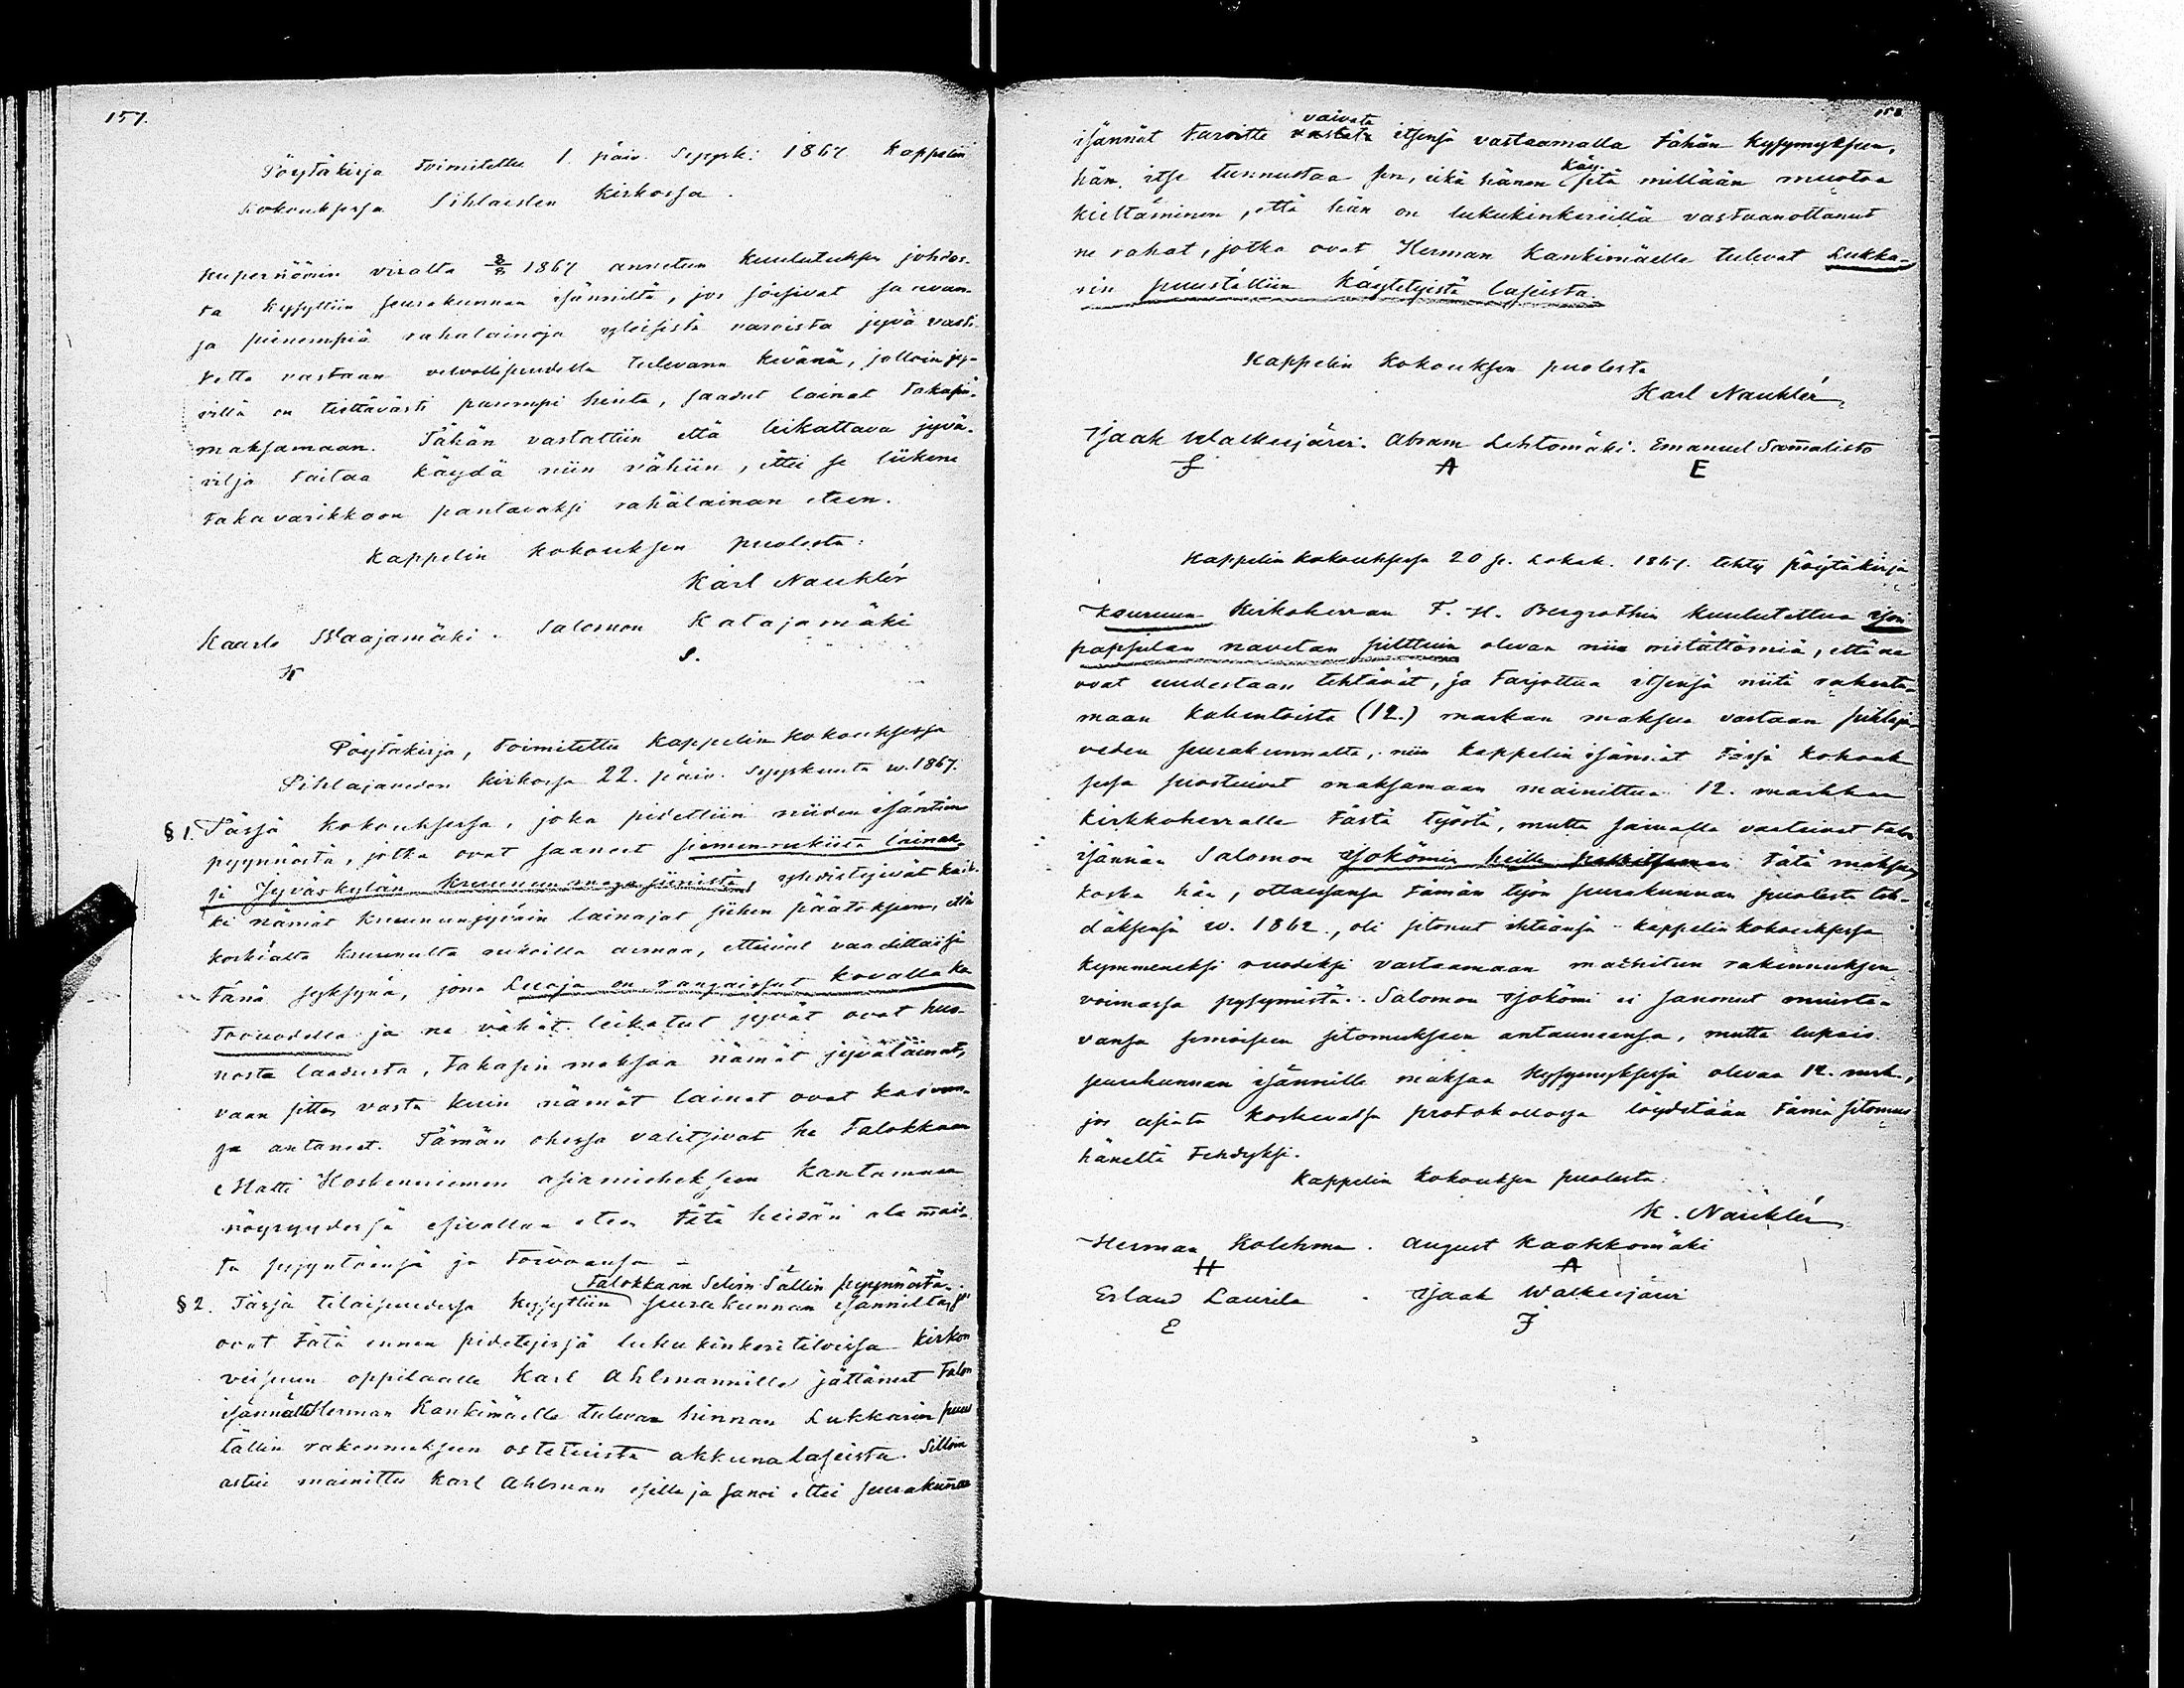 157.
Pöytäkirja toimitettu 1. päiv. Syysk: 1867 Kappelin
Kokouksessa Pihlaisten Kirkossa.
Kupernöörin viralta 8/8 1867 annetun Kuulutuksen johdos-
ta kysyttiin seurakunnan isänniltä, jos soisivat saavan-
sa pienempiä rahalainoja yleisistä varoista jyvä vasti-
vetta vastaan velvollisuudella tulevana kevänä, jolloin jy-
villä on tiettävästi parempi hinta, saadut lainat takasin
maksamaan. Tähän vastattiin että leikattava jyvä-
vilja taitaa käydä niin vähiin, ettei se liikene
takavarikkoon pantavaksi rahalainan eteen.
Kappelin Kokouksen puolesta:
Karl Nauklér
Kaarlo Waajamäki. Salomon Katajamäki
K S.
Pöytäkirja, toimitettu Kappelin Kokouksessa
Pihlajaveden Kirkossa 22. päiv. Syyskuuta w. 1867.
§ 1. Tässä Kokouksessa, joka pidettiin niiden isäntien
pyynnöstä, jotka ovat saaneet siemen-rukiita lainak-
si Jyväskylän Kruunun magasiinista, yhdistyivät kaik-
ki nämät kruununjyväin lainajat siihen päätökseen, että
korkialta kruunulta rukoilla armoa, etteivät vaadittaisi
tänä syksynä, jona Luoja on rangaissut kovalla ka-
tovuodella ja ne vähät leikatut jyvät ovat huo-
nosta laadusta, takasin maksaa nämät jyvälainat,
vaan sitten vasta kuin nämät lainat ovat kasvun-
sa antaneet. Tämän ohessa valitsivat he talokkaan
Matti Koskenniemen asiamieheksen kantamaan
nöyryydessä esivallan eteen tätä heidän alamais-
ta pyyntöänsä ja toivoansa -
talokkaan Selvin Sällin pyynnöstä
§ 2. Tässä tilaisuudessa kysyttiin seurakunnan isänniltä, jos
ovat tätä ennen pidetyissä lukukinkeri tiloissa Kirkon
veisuun oppilaalle Karl Ahlmannille jättäneet talon
isännälle Herman Kankimäelle tulevan hinnan Lukkarin puus
tällin rakennukseen ostetuista akkunalaseista. Silloin
astui mainittu Karl Ahlman esille ja sanoi ettei seurakunnan
158.
vaivata
isännät tarvitte vastata itsensä vastaamalla tähän kysymykseen,
käy
hän itse tunnustaa sen, eikä hänen sitä millään muotoa
kieltäminen, että hän on lukukinkereillä vastaanottanut
ne rahat, jotka ovat Herman Kankimäelle tulevat Lukka-
rin puuställiin Käytetyistä laseista.
Kappelin Kokouksen puolesta
Karl Nauklér
Isaak Walkeejärvi. Abram Lehtomäki. Emanuel Sammalisto
I A E
Kappelin kokouksessa 20 p. Lokak. 1867. tehty pöytäkirja
Keuruun Kirkoherran F. H. Bergrothin kuulutettua ison
pappilan navetan silttiin olevan niin mitättömiä, että ne
ovat uudestaan tehtävät, ja tarjottua itsensä niitä rakenta-
maan kahentoista (12.) markan maksua vastaan pihlaja-
veden seurakunnalta, niin kappelin isännät tässä kokouk-
sessa suostuivat maksamaan mainittua 12. markkaa
kirkkoherralle tästä työstä, mutta samalla vaativat talon
isännän Salomon Isokömin heille palkitsemaan tätä maksua,
koska hän, ottaessansa tämän työn seurakunnan puolesta teh-
däksensä w. 1862., oli sitonut ihteänsä kappelin kokouksessa
kymmeneksi vuodeksi vastaamaan mainitun rakennuksen
voimassa pysymistä. Salomon Isokömi ei sanonut muista-
vansa semoiseen sitomukseen antauneensa, mutta lupais
seurakunnan isännille maksaa kysymyksessä olevaa 12. mrk.,
jos asiata koskevassa protokollossa löydetään tämä sitomus
häneltä tehdyksi.
Kappelin Kokouksen puolesta:
K. Nauklér
Herman Kolehma. August Kaakkomäki
H A
Erland Laurila. Isaak Walkeejärvi
E I